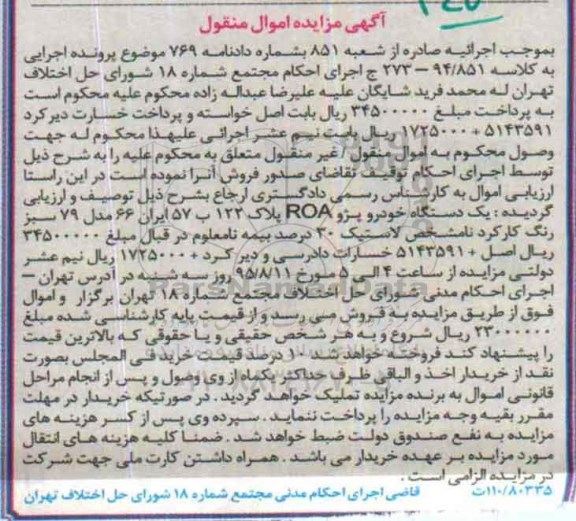 آگهی مزایده اموال منقول
بموجب اجرائیه صادره از شعبه ۸۵۱ بشماره دادنامه ۷۶۹ موضوع پرونده اجرایی
به کلاسه ۹۴/۸۵۱ – ۲۷۳ ج اجرای احکام مجتمع شماره ۱۸ شورای حل اختلاف
تهران له محمد فرید شایگان علیه علیرضا عبداله زاده محکوم علیه محکوم است
به پرداخت مبلغ ۳۴۵۰۰۰۰۰ ریال بابت اصل خواسته و پرداخت خسارت دیرکرد
۵۱۴۳۵۹۱ + ۱۷۲۵۰۰۰ ریال بابت نیم عشر اجرائی علیهذا محکوم له جهت
وصول محکوم به اموال منقول / غیر منقول متعلق به محکوم علیه را به شرح ذیل
توسط اجرای احکام توقیف تقاضای صدور فروش آنرا نموده است در این راستا
ارزیابی اموال به کارشناس رسمی دادگستری ارجاع بشرح ذیل توصیف و ارزیابی
گردیده : یک دستگاه خودرو پژو ROA پلاک ۱۲۲ ب ۵۷ ایران ۶۶ مدل ۷۹ سبز
رنگ کارکرد نامشخص لاستیک ۳۰ درصد بیمه نامعلوم در قبال مبلغ ۳۴۵۰۰۰۰۰
ریال اصل + ۵۱۴۳۵۹۱ خسارات دادرسی و دیر کرد + ۱۷۲۵۰۰۰ ریال نیم عشر
دولتی مزایده از ساعت ۴ الی ۵ مورخ ۹۵/۸/۱۱ روز سه شنبه در آدرس تهران –
اجرای احکام مدنی شورای حل اختلاف مجتمع شماره ۱۸ تهران برگزار و اموال
فوق از طریق مزایده به فروش می رسد و از قیمت پایه کارشناسی شده مبلغ
۲۳۰۰۰۰۰۰ ریال شروع و به هر شخص حقیقی و یا حقوقی که بالاترین قیمت
را پیشنهاد کند فروخته خواهد شد ۱۰ درصد قیمت خرید فی المجلس بصورت
نقد از خریدار اخذ و الباقی ظرف حداکثر یکماه از وی وصول و پس از انجام مراحل
قانونی اموال به برنده مزایده تملیک خواهد گردید . در صورتیکه خریدار در مهلت
مقرر بقیه وجه مزایده را پرداخت ننماید . سپرده وی پس از کسر هزینه های
مزایده به نفع صندوق دولت ضبط خواهد شد . ضمنا کلیه هزینه های انتقال
مورد مزایده بر عهده خریدار می باشد . همراه داشتن کارت ملی جهت شرکت
در مزایده الزامی است .
۱۱۰/۸۰۳۳۵ت قاضی اجرای احکام مدنی مجتمع شماره ۱۸ شورای حل اختلاف تهران